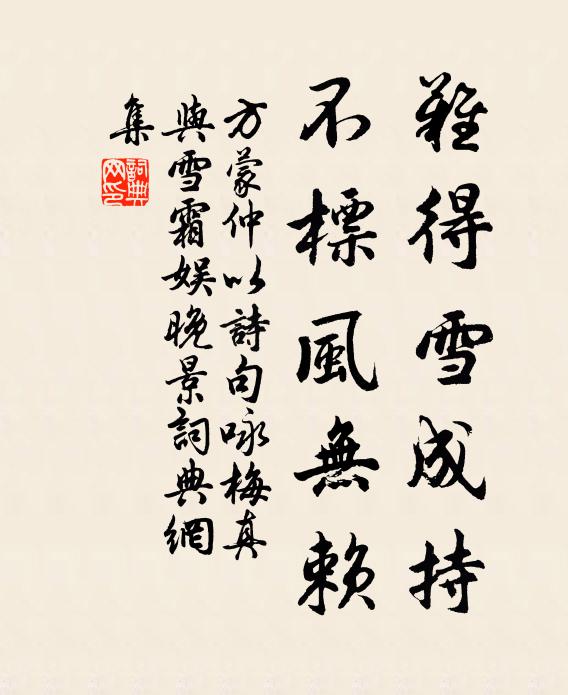 難得雪成持
不標風無賴
方蒙仲以詩句咏梅真
與雪霜娛晚景詞典網
集
詞典
网印